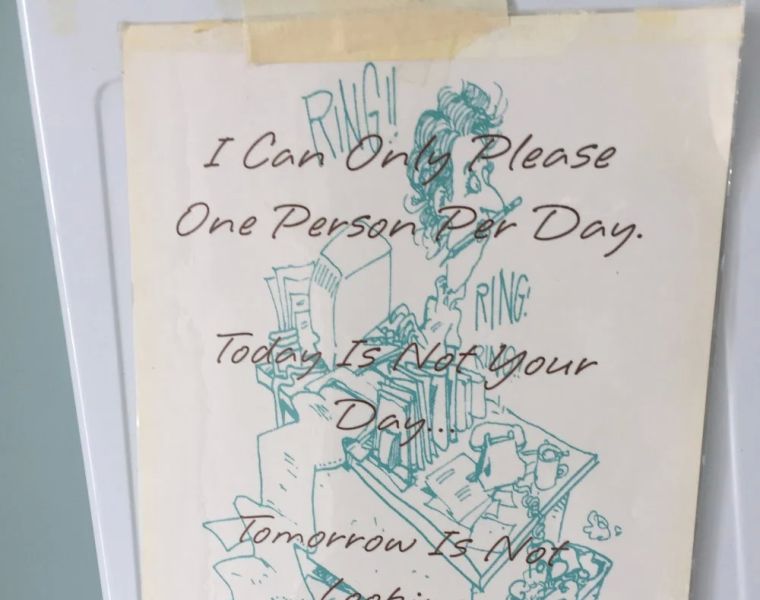 RING!!
I Can Only Please
One Person Per Day.
RING!
Today Is Not Your
Day...
Tomorrow Is Not